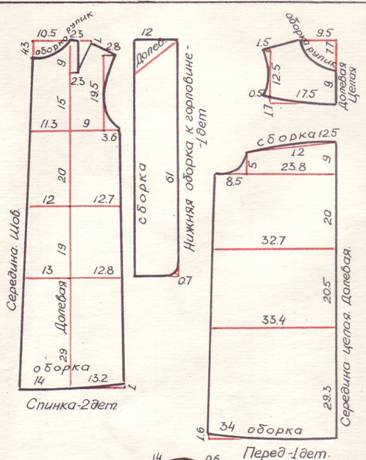 10.5
2.3
1
2.8
4.3
оборка рупик
9
2.3
19.5
15
11.3
9
3.6
20
12
12.7
19
13
12.8
Долевая
29
оборка
14
13.2
1
Середина. Шов
Спинка-2дет
12
Долев.
сборка
61
0.7
Нижняя оборка к горловине-
-1дет.
оборка рупик
9.5
7.7
1.5
12.5
9
0.5
17.5
1.7
Долевая
Целая
сборка
12.5
12
5
8.5
23.8
9
20
32.7
20.5
33.4
29.3
34
оборка
1.6
Середина целая. Долевая.
Перед-1дет.
14
0.6